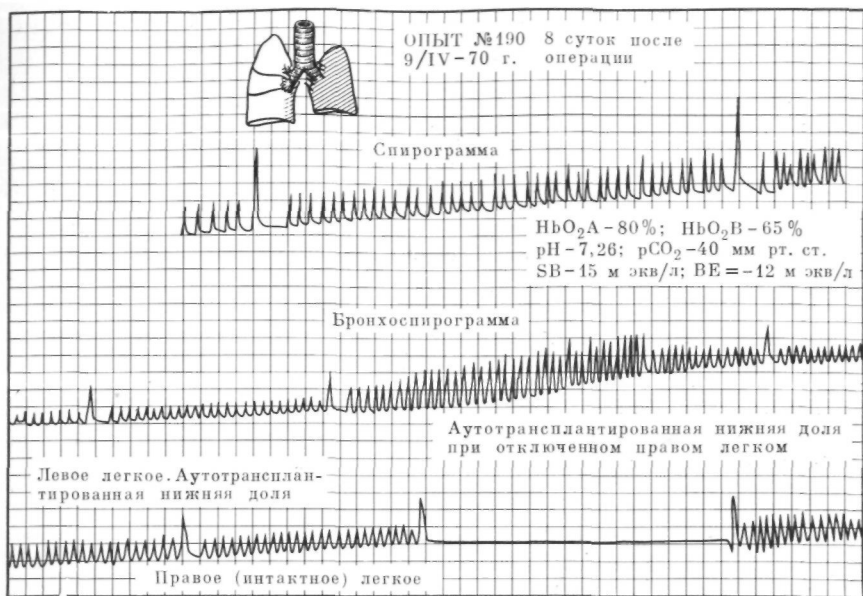 ОПЫТ №190 8 суток после
9/IV-70 г. операции
Спирограмма
HbO₂A-80%; HbO₂B-65%
pH-7,26; pCO₂-40 мм рт. ст.
SB-15 м экв/л; BE=-12 м экв/л
Бронхоспирограмма
Аутотрансплантированная нижняя доля
при отключенном правом легком
Левое легкое. Аутотársплан-
тированная нижняя доля
Правое (интактное) легкое